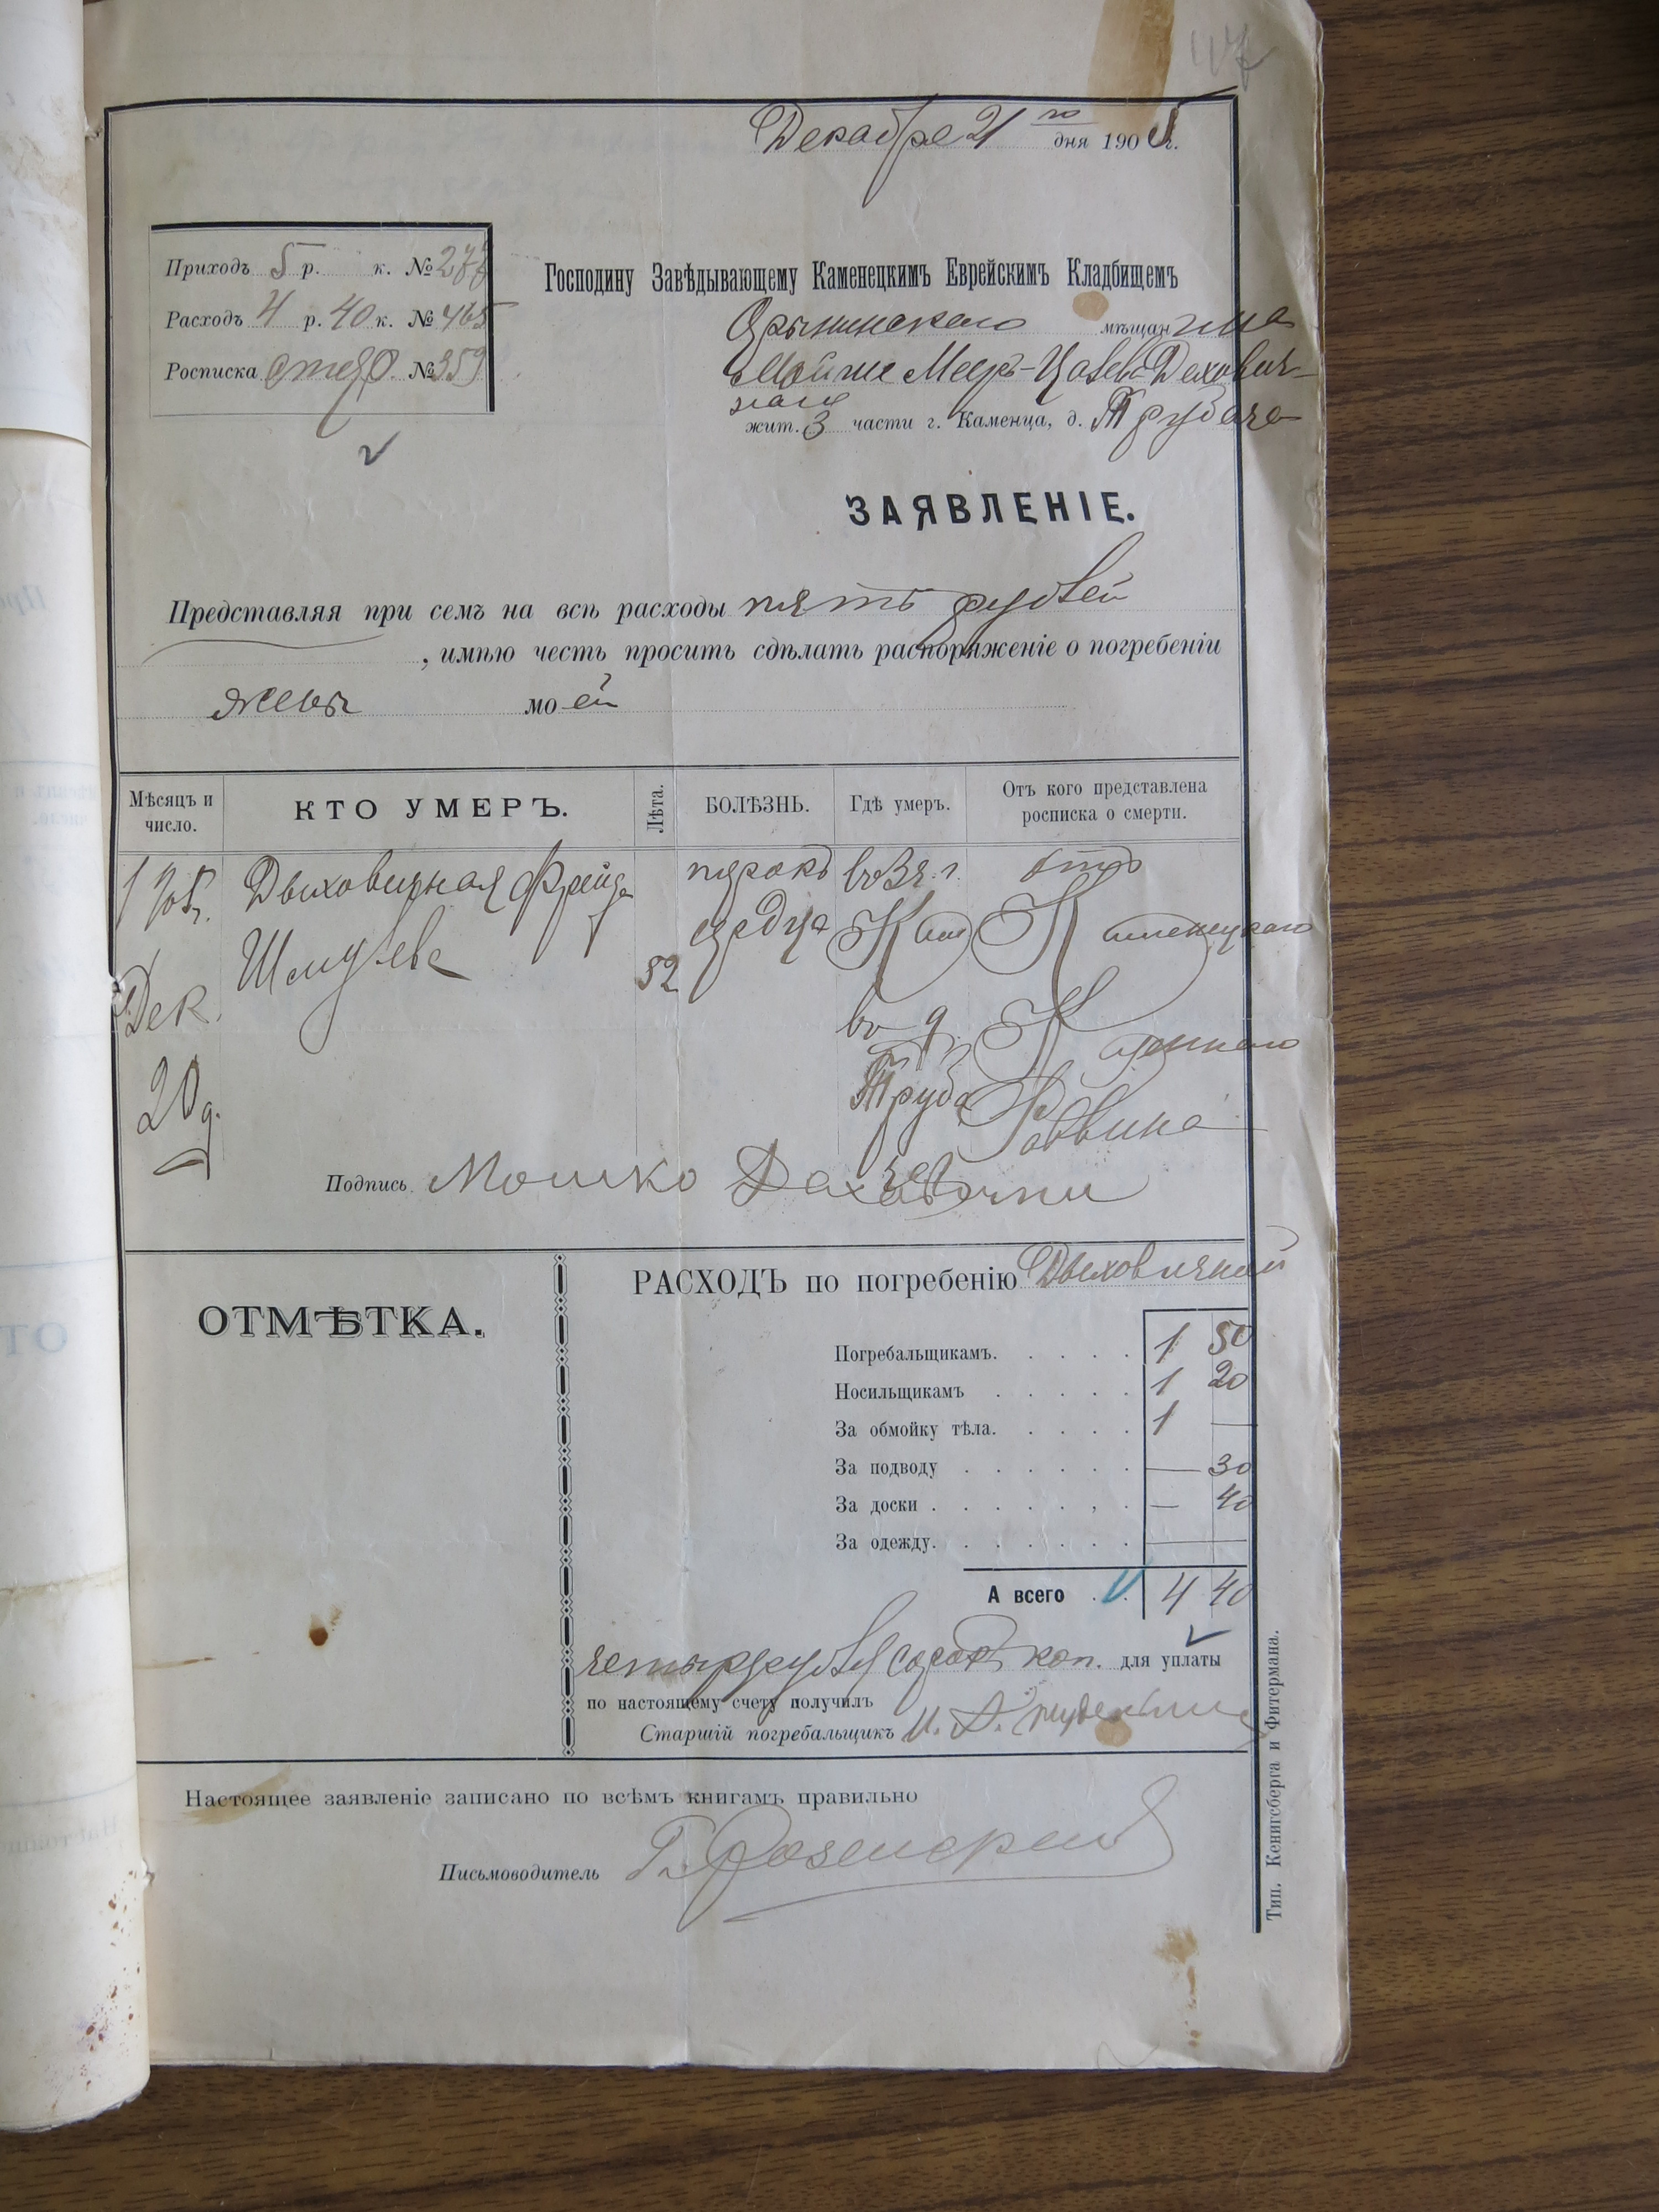 Декабря 21 го дня 1905 г.
Приходъ 5 р. к. №
Расходъ 4 р. 40 к. № 465
Росписка №359
Господину Завѣдывающему Каменецкимъ Еврейскимъ Кладбищемъ
мѣщанина
Мойше Меер-
жит. 3 части г. Каменца, д. Трубача
ЗАЯВЛЕНІЕ.
Представляя при семъ на всѣ расходы пять рублей
, имѣю честь просить сдѣлать распоряженіе о погребеніи
жены моей
Мѣсяцъ и число.
КТО УМЕРЪ.
Лѣта.
БОЛѢЗНЬ.
Гдѣ умеръ.
Отъ кого представлена росписка о смерти.
Дыховичная Фрейда
Шмулева
Дек.
20 д.
52
порокъ
сердца
въ 3 ч. г.
Кам
въ д.
Труба
отъ
Каменецкаго
Казеннаго
Раввина
Подпись Мошко
ОТМѢТКА.
РАСХОДЪ по погребенію Дыховичной
Погребальщикамъ. 1 50
Носильщикамъ 1 20
За обмойку тѣла. 1 —
За подводу — 30
За доски — 40
За одежду. —
А всего 4 40
четыре рубля сорокъ коп. для уплаты
по настоящему счету получилъ
Старшій погребальщикъ
Настоящее заявленіе записано по всѣмъ книгамъ правильно
Письмоводитель
Тип. Кенигсберга и Фитермана.